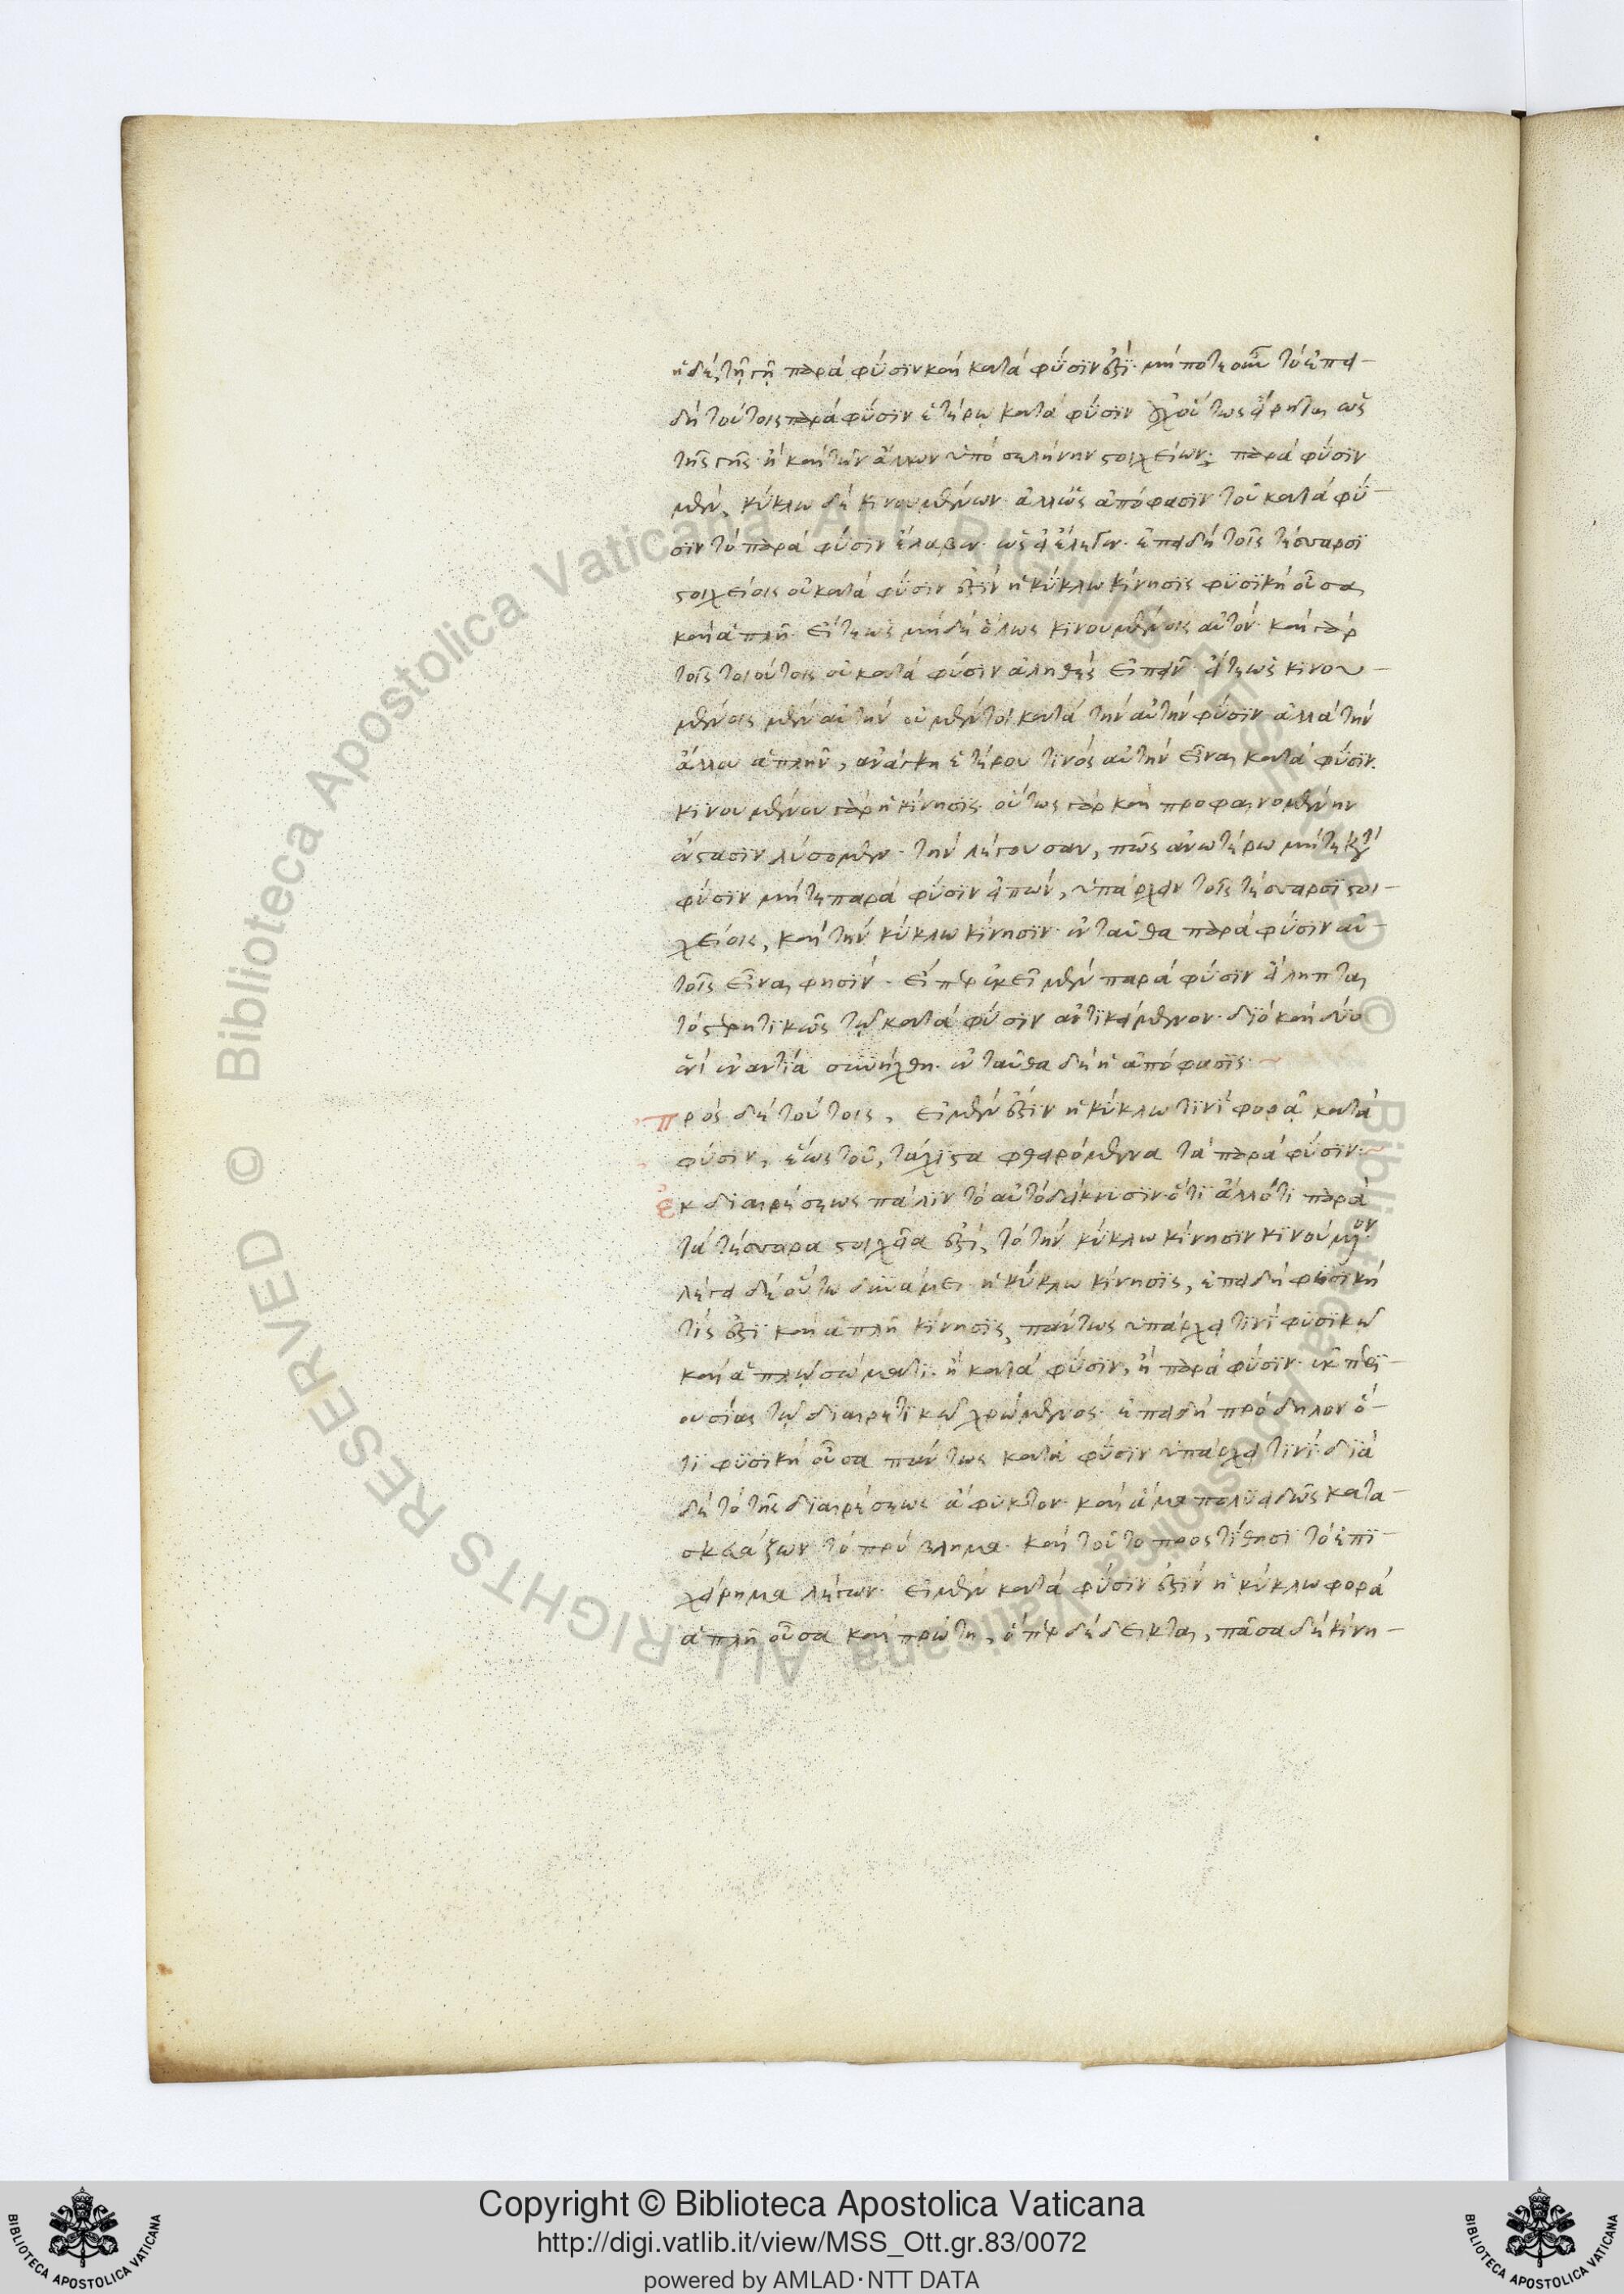 ἡ δὲ, τῇ γῇ παρὰ φύσιν καὶ κατὰ φύσιν ἐστί· μήποτε οὖν τὸ ἐπει-
δὴ τούτοις παρὰ φύσιν ἑτέρῳ κατὰ φύσιν οὐχ οὕτως εἴρηται ὡς
τῆς γῆς ἢ καὶ τῶν ἄλλων ὑπὸ σελήνην στοιχείων· παρὰ φύσιν
μὲν, κύκλῳ δὲ κινουμένων· ἀλλ' ὡς ἀπόφασιν τοῦ κατὰ φύ-
σιν τὸ παρὰ φύσιν ἔλαβεν· ὡς εἰ ἔλεγεν· ἐπειδὴ τοῖς τέσσαρσι
στοιχείοις οὐ κατὰ φύσιν ἐστὶν ἡ κύκλῳ κίνησις φυσικὴ οὖσα
καὶ ἁπλῆ· εἴτε ὡς μηδὲ ὅλως κινουμένοις αὐτόν· καὶ γὰρ
τοῖς τοιούτοις οὐ κατὰ φύσιν ἀληθὲς εἰπεῖν· εἴτε ὡς κινου-
μένοις μὲν αὐτὴν οὐ μέντοι κατὰ τὴν αὐτὴν φύσιν ἀλλὰ τὴν
ἄλλου ἁπλῆν, ἀνάγκη ἑτέρου τινὸς αὐτὴν εἶναι κατὰ φύσιν.
κινουμένου γὰρ ἡ κίνησις· οὕτως γὰρ καὶ προφαινομένην
ἔνστασιν λύσομεν· τὴν λέγουσαν, πῶς ἀνωτέρω μήτε κατὰ
φύσιν μήτε παρὰ φύσιν εἰπὼν, ὑπάρχειν τοῖς τέσσαρσι στοι-
χείοις, καὶ τὴν κύκλῳ κίνησιν· ἐνταῦθα παρὰ φύσιν αὐ-
τοῖς εἶναι φησίν· εἴπερ ἐκεῖ μὲν παρὰ φύσιν εἴληπται
τὸ στερητικῶς τῷ κατὰ φύσιν ἀντικείμενον· διὸ καὶ δύο
ἑνὶ ἐναντία συνήχθη· ἐνταῦθα δὲ ἡ ἀπόφασις·
πρὸς δὲ τούτοις, εἰ μέν ἐστιν ἡ κύκλῳ τινὶ φορὰ κατὰ
φύσιν, ἕως τοῦ, τάχιστα φθειρόμενα τὰ παρὰ φύσιν·
ἐκ διαιρέσεως πάλιν τὸ αὐτὸ δείκνυσιν· ὅτι ἄλλό τι παρὰ
τὰ τέσσαρα στοιχεῖα ἐστὶ, τὸ τὴν κύκλῳ κίνησιν κινούμενον·
λέγει δὲ οὕτω δυνάμει· ἡ κύκλῳ κίνησις, ἐπειδὴ φυσική
τίς ἐστι καὶ ἁπλῆ κίνησις, πάντως ὑπάρχει τινὶ φυσικῷ
καὶ ἁπλῷ σώματι· ἢ κατὰ φύσιν, ἢ παρὰ φύσιν· ἐκ περι-
ουσίας τῷ διαιρετικῷ χρώμενος· ἐπειδὴ πρόδηλον ὅ-
τι φυσικὴ οὖσα πάντως κατὰ φύσιν ὑπάρχει τινί· διὰ
δὲ τὸ τῆς διαιρέσεως ἄφυκτον· καὶ ἅμα πολυειδῶς κατα-
σκευάζων τὸ πρόβλημα· καὶ τοῦτο προστίθησι τὸ ἐπι-
χείρημα λέγων· εἰ μὲν κατὰ φύσιν ἐστὶν ἡ κύκλῳ φορὰ
ἁπλῆ οὖσα καὶ πρώτη, ὅπερ δέδεικται, πᾶσα δὲ κίνη-
Copyright © Biblioteca Apostolica Vaticana
http://digi.vatlib.it/view/MSS_Ott.gr.83/0072
powered by AMLAD·NTT DATA
BIBLIOTECA APOSTOLICA VATICANA
BIBLIOTECA APOSTOLICA VATICANA
© Biblioteca Apostolica Vaticana ALL RIGHTS RESERVED
© Biblioteca Apostolica Vaticana ALL RIGHTS RESERVED